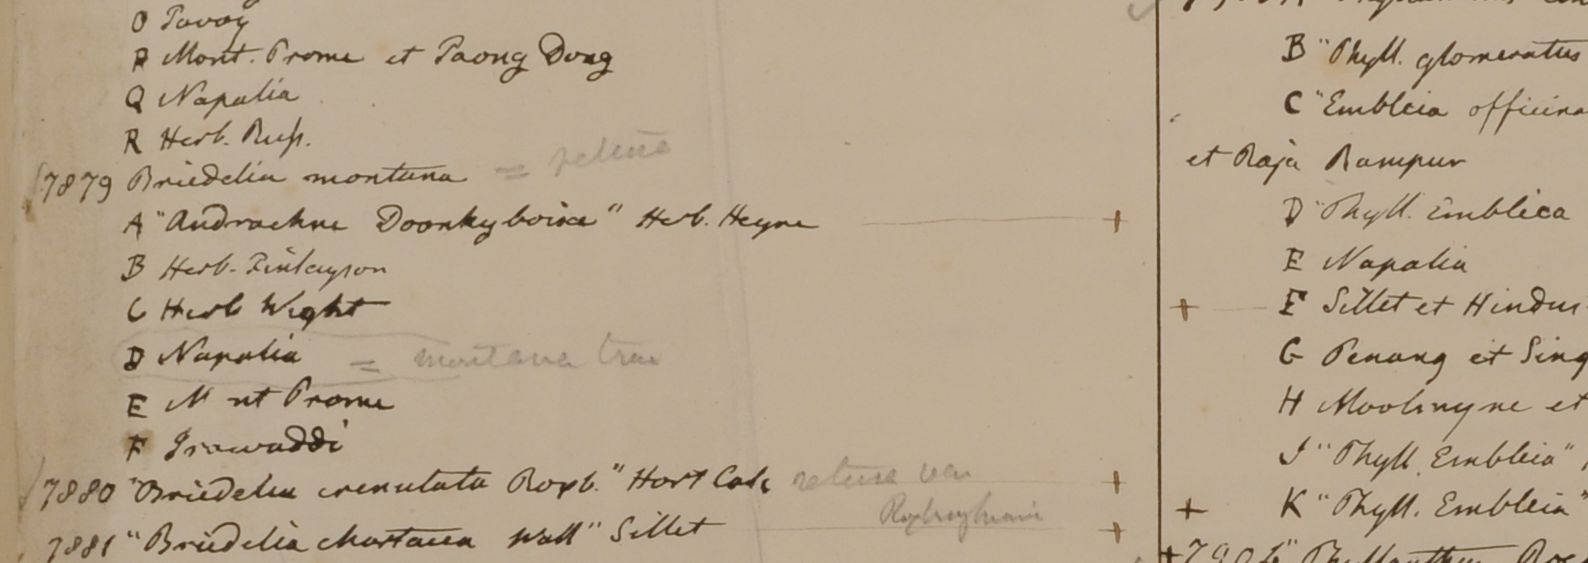 O Tavoy
P Mont. Prome et Taong Dong
Q Napalia
R Herb. Russ.
7879 Briedelia montana = retusa
A "Andrachne Doonkyboica" Herb. Heyne +
B Herb. Finlayson
C Herb Wight
D Napalia = montana true
E M nt Prome
F Irawaddi
7880 "Briedelia crenulata Roxb." Hort Calc retusa var
Roxburghiana
7881 "Briedelia chartacea Wall" Sillet +
B "Phyll. glomeratus
C "Emblica officina
et Raja Rampur
D "Phyll. Emblica
E Napalia
+ F Sillet et Hindus
G Penang et Sing
H Moolmyne et
J "Phyll. Emblica"
+ K "Phyll. Emblica"